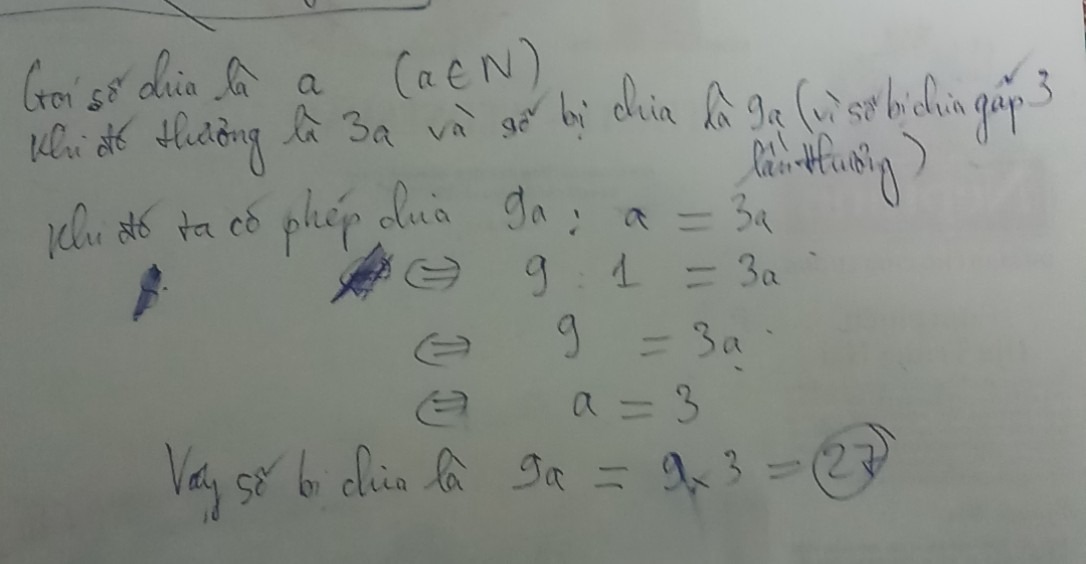 Gọi số chia là a (a ∈ N)
Khi đó thương là 3a và số bị chia là 9a (vì số bị chia gấp 3 lần thương)
Khi đó ta có phép chia 9a : a = 3a
⇔ 9 : 1 = 3a
⇔ 9 = 3a
⇔ a = 3
Vậy số bị chia là 9a = 9 x 3 = 27